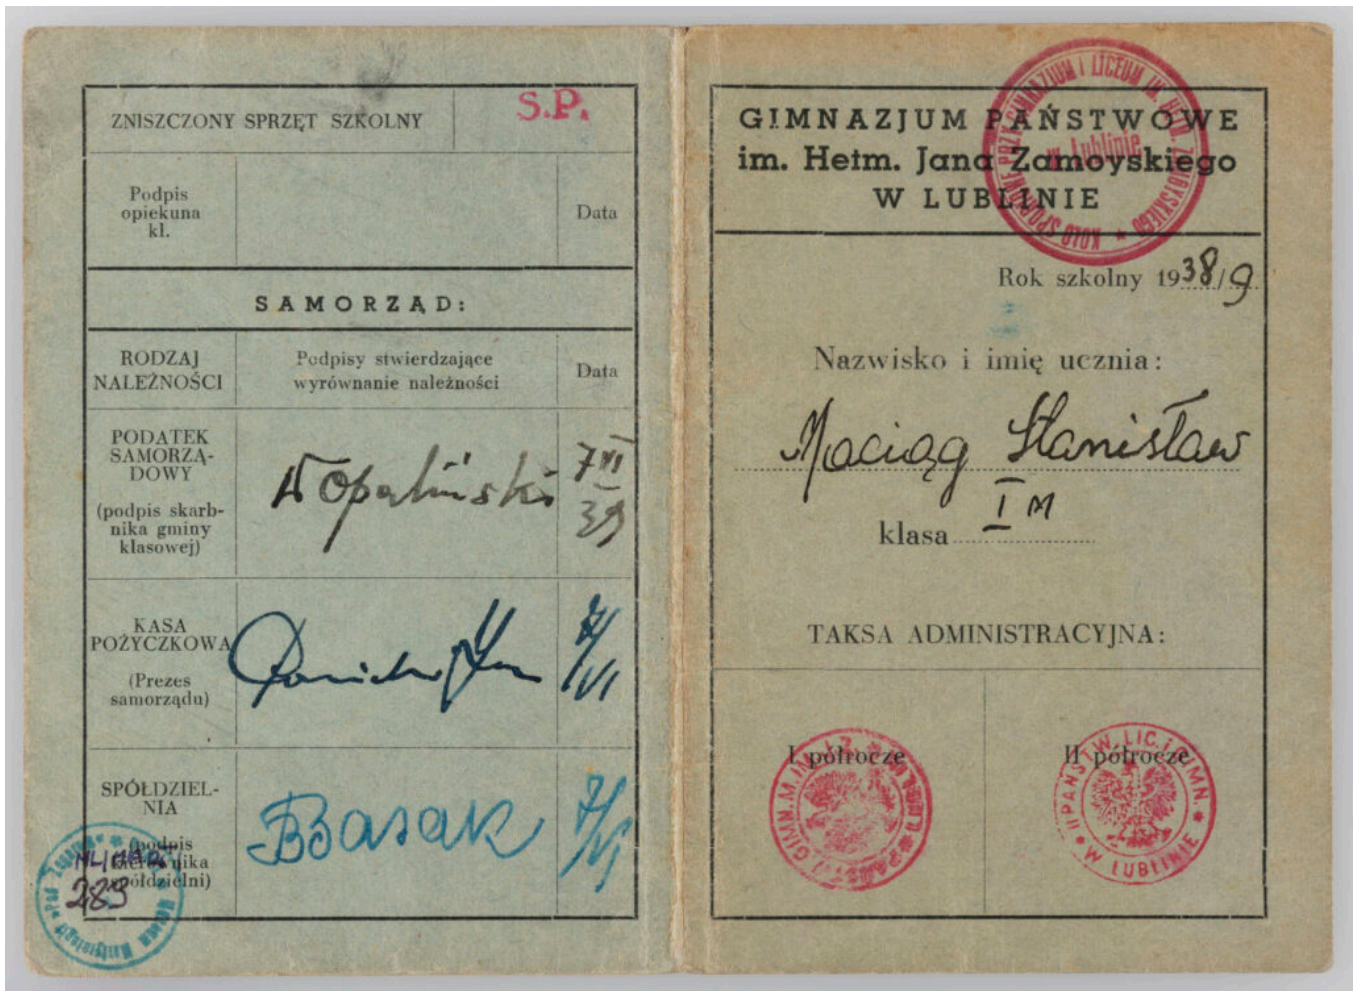 ZNISZCZONY SPRZĘT SZKOLNY
S.P.
Podpis
opiekuna
kl.
Data
SAMORZĄD:
RODZAJ
NALEŻNOŚCI
Podpisy stwierdzające
wyrównanie należności
Data
PODATEK
SAMORZĄ-
DOWY
(podpis skarb-
nika gminy
klasowej)
W Opaliński
7 VI
39
KASA
POŻYCZKOWA
(Prezes
samorządu)
7/VI
SPÓŁDZIEL-
NIA
(podpis
kierownika
spółdzielni)
Basak
7/VI
289
GIMNAZJUM PAŃSTWOWE
im. Hetm. Jana Zamoyskiego
W LUBLINIE
KOŁO SPORTOWE PRZY GIMNAZJUM I LICEUM IM. HETM. ZAMOYSKIEGO
w Lublinie
Rok szkolny 1938/9
Nazwisko i imię ucznia:
Maciąg Stanisław
klasa I M
TAKSA ADMINISTRACYJNA:
I półrocze
II półrocze
PAŃSTW. LIC. i GIMN.
W LUBLINIE